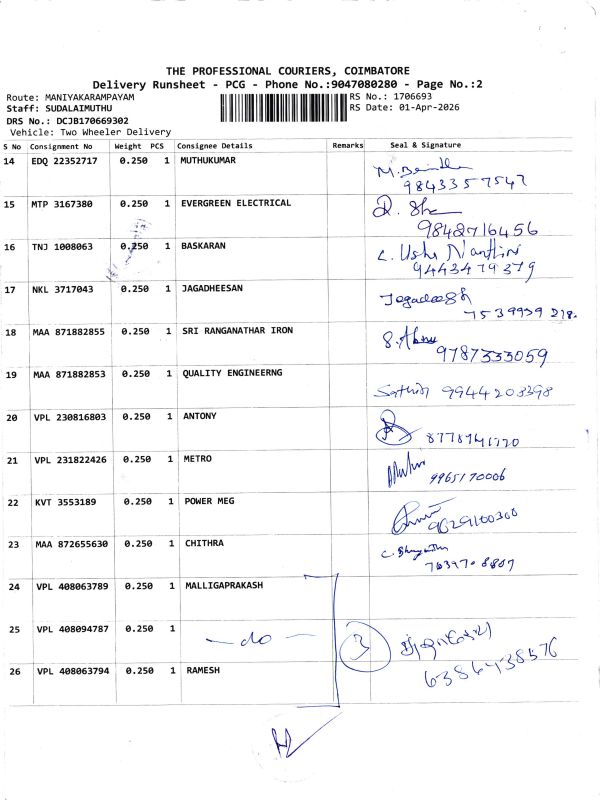 THE PROFESSIONAL COURIERS, COIMBATORE
Delivery Runsheet - PCG - Phone No.:9047080280 - Page No.:2
Route: MANIYAKARAMPAYAM RS No.: 1706693
Staff: SUDALAIMUTHU RS Date: 01-Apr-2026
DRS No.: DCJB170669302
Vehicle: Two Wheeler Delivery
S No Consignment No Weight PCS Consignee Details Remarks Seal & Signature
14 EDQ 22352717 0.250 1 MUTHUKUMAR
9843357547
15 MTP 3167380 0.250 1 EVERGREEN ELECTRICAL
9842716456
16 TNJ 1008063 0.250 1 BASKARAN C. Usha Nanthini
9443479379
17 NKL 3717043 0.250 1 JAGADHEESAN
7539939218.
18 MAA 871882855 0.250 1 SRI RANGANATHAR IRON
9787333059
19 MAA 871882853 0.250 1 QUALITY ENGINEERNG
Sathish 9944203398
20 VPL 230816803 0.250 1 ANTONY
21 VPL 231822426 0.250 1 METRO
9965170006
22 KVT 3553189 0.250 1 POWER MEG
9629100300
23 MAA 872655630 0.250 1 CHITHRA
24 VPL 408063789 0.250 1 MALLIGAPRAKASH
25 VPL 408094787 0.250 1 — do — 3
26 VPL 408063794 0.250 1 RAMESH 6386438576